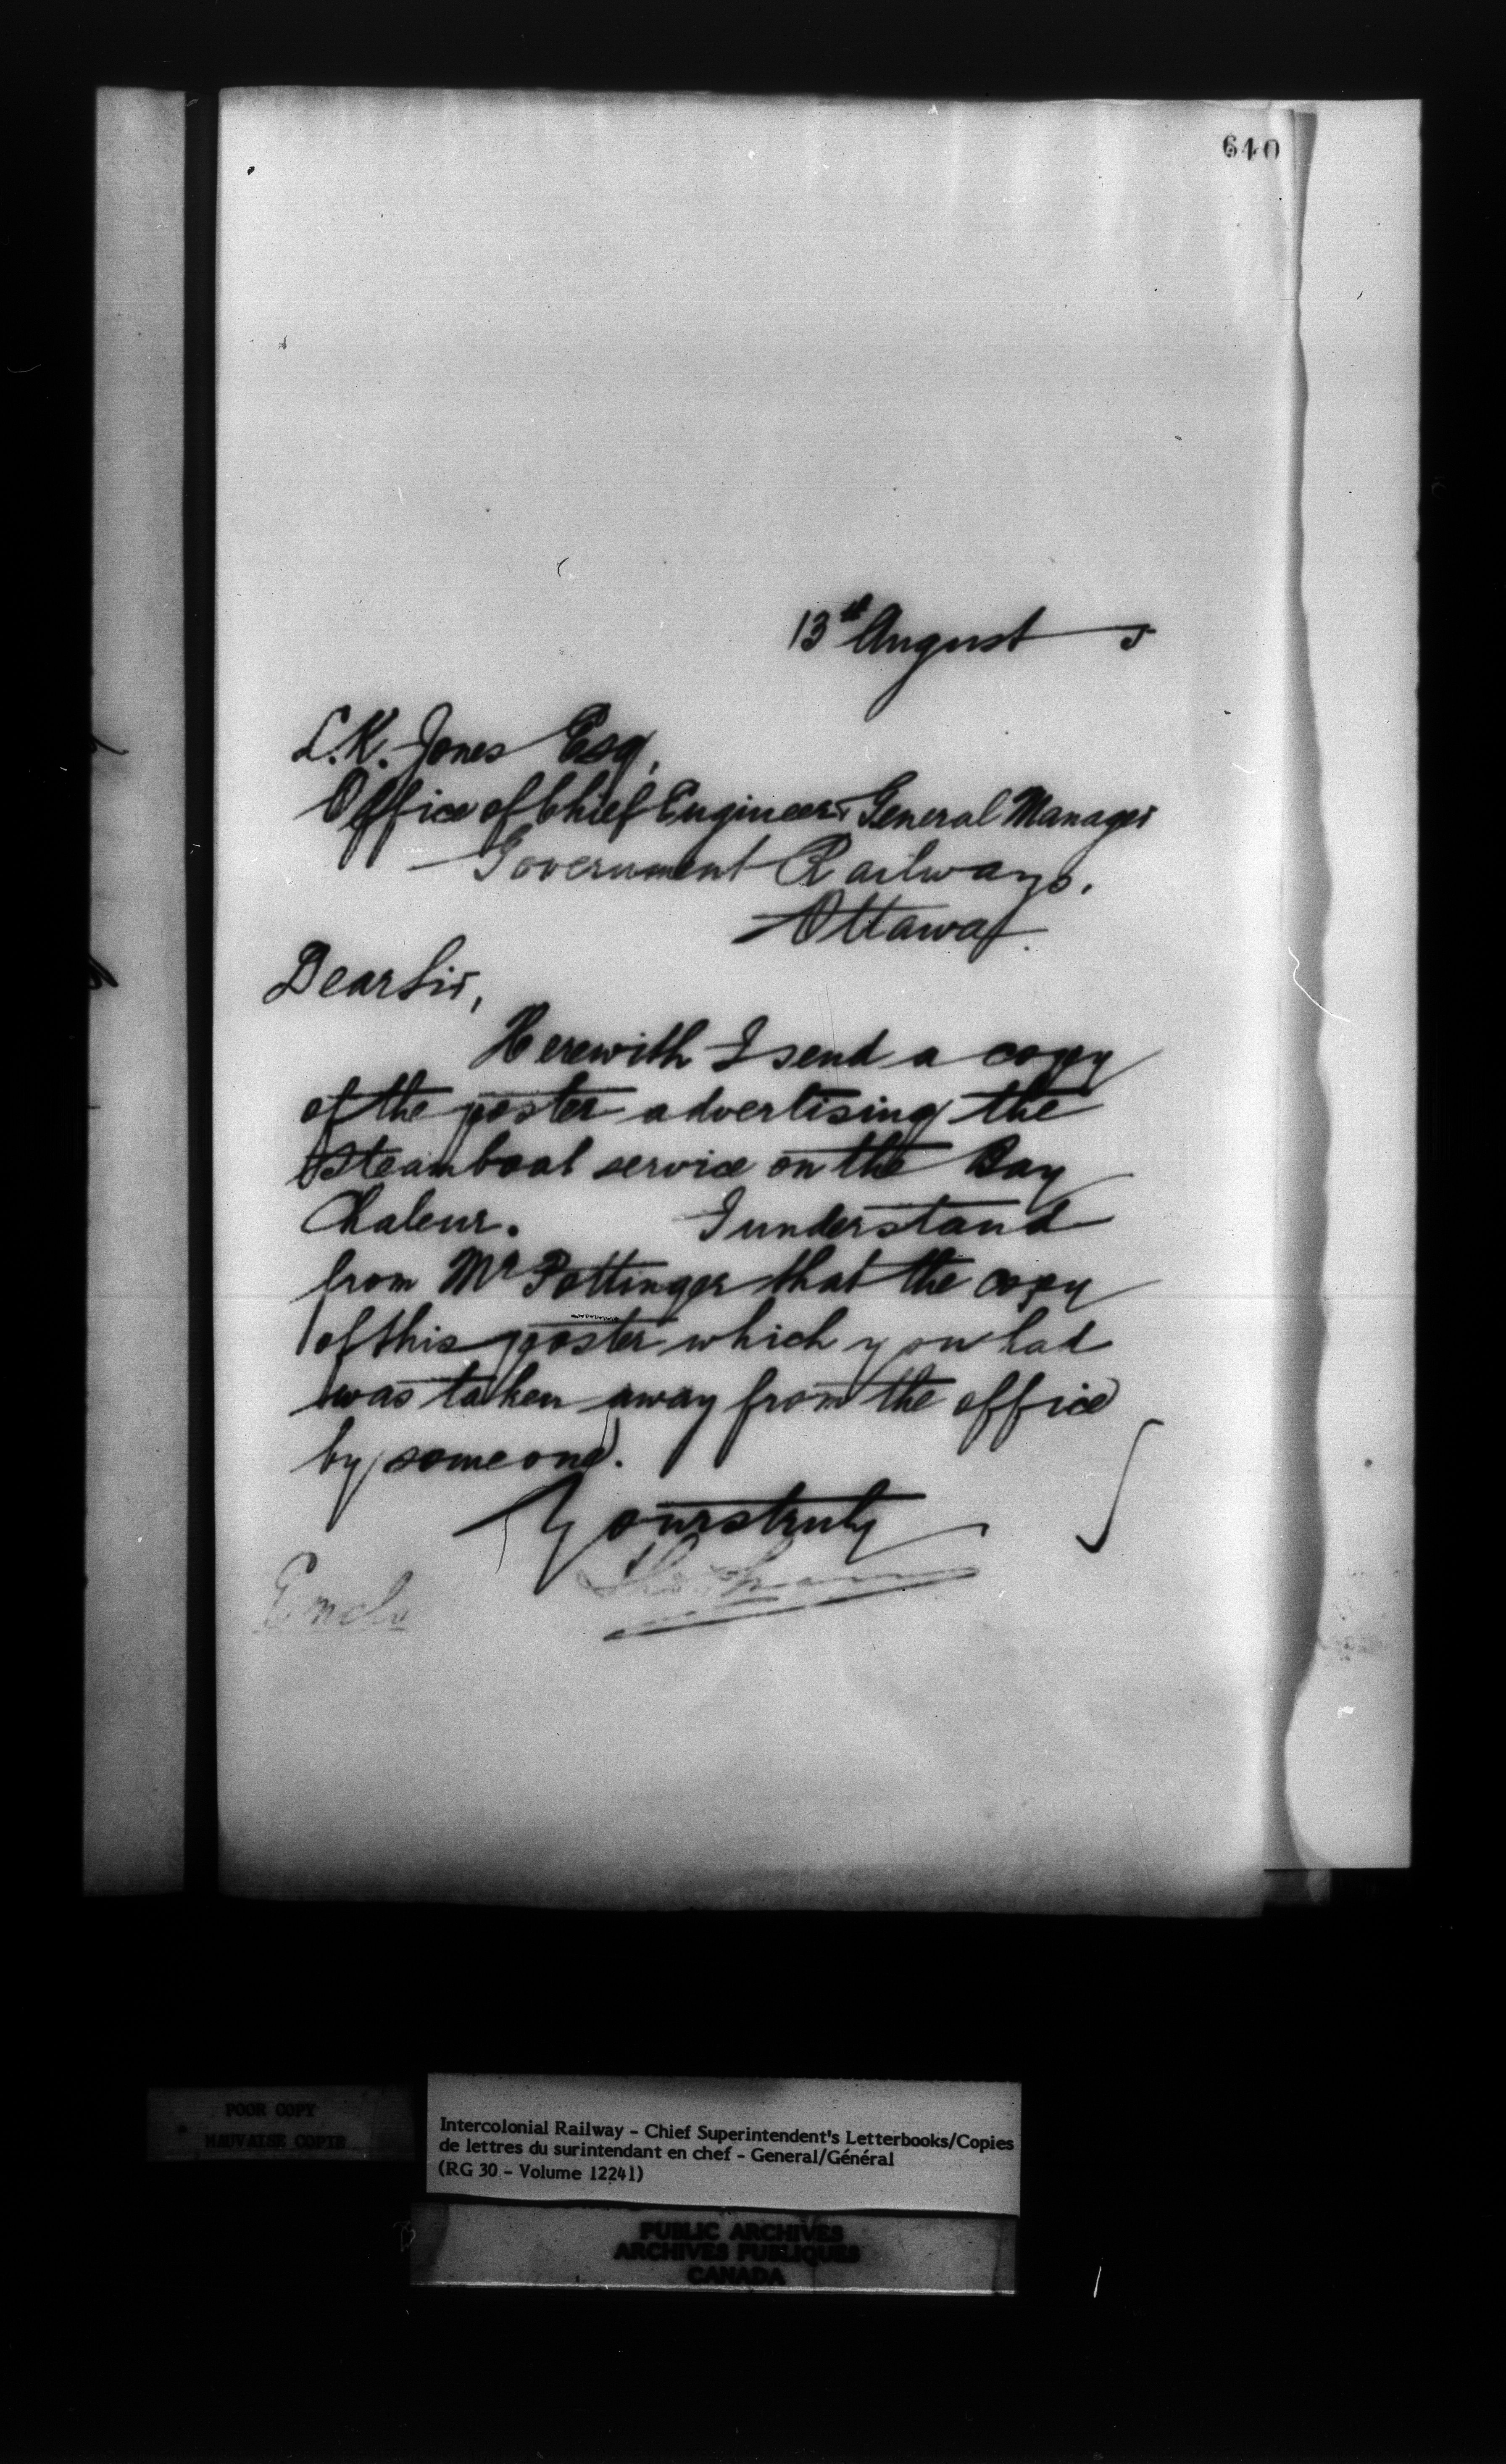 640
13th August 5
L.K. Jones Esq,
Office of Chief Engineer & General Manager
Government Railways.
Ottawa.
Dear Sir,
Herewith I send a copy
of the poster advertising the
Steamboat service on the Bay
Chaleur. I understand
from Mr Pottinger that the copy
of this poster which you had
was taken away from the office
by someone.
Yours truly
Encls
POOR COPY
MAUVAISE COPIE
Intercolonial Railway - Chief Superintendent's Letterbooks/Copies
de lettres du surintendant en chef - General/Général
(RG 30 - Volume 12241)
PUBLIC ARCHIVES
ARCHIVES PUBLIQUES
CANADA